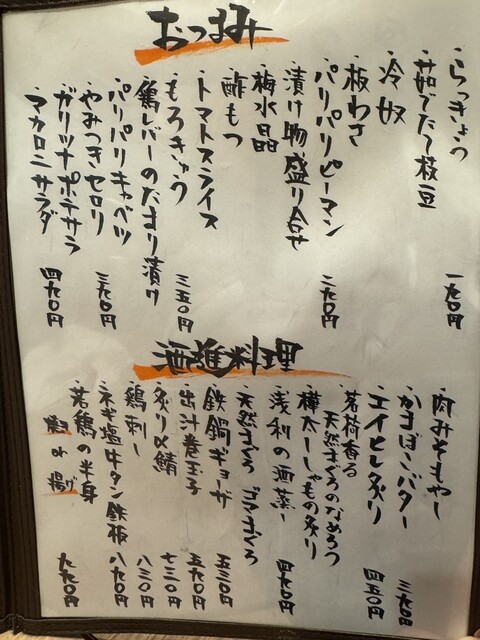 おつまみ
・らっきょう
・茹でたて枝豆
一九〇円
・冷奴
・板わさ
・パリパリピーマン
二九〇円
・漬け物盛り合せ
・梅水晶
・酢もつ
・トマトスライス
・もろきゅう
三五〇円
・鶏レバーのたまり漬け
・パリパリキャベツ
・やみつきセロリ
三九〇円
・ガリツナポテサラ
・マカロニサラダ
四九〇円
酒進料理
・肉みそもやし
・かまぼこバター
三九〇円
・エイヒレ炙り
四五〇円
・茗荷香る
天然まぐろのなめろう
・樺太ししゃもの炙り
・浅利の酒蒸し
四九〇円
・天然まぐろ ゴマまぐろ
・鉄鍋ギョーザ
五三〇円
・出汁巻玉子
五九〇円
・炙り〆鯖
七三〇円
・鶏刺し
八三〇円
・ネギ塩牛タン鉄板
八九〇円
・若鶏の半身
焼き or 揚げ
九九〇円